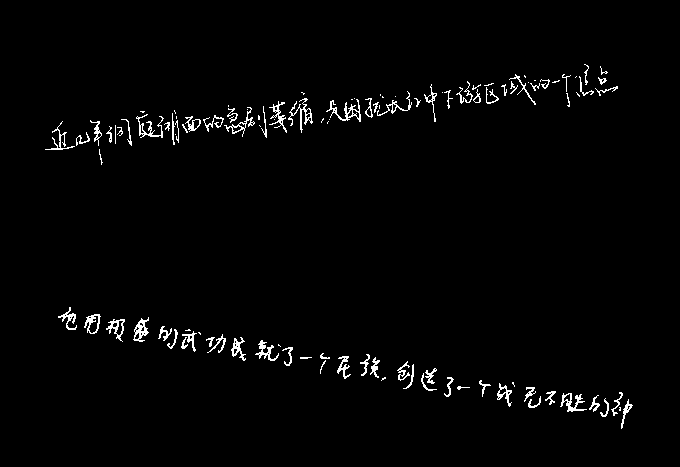 近几年洞庭湖面的急剧萎缩,是困扰长江中下游区域的一个焦点
他用极盛的武功成就了一个民族,创造了一个战无不胜的神